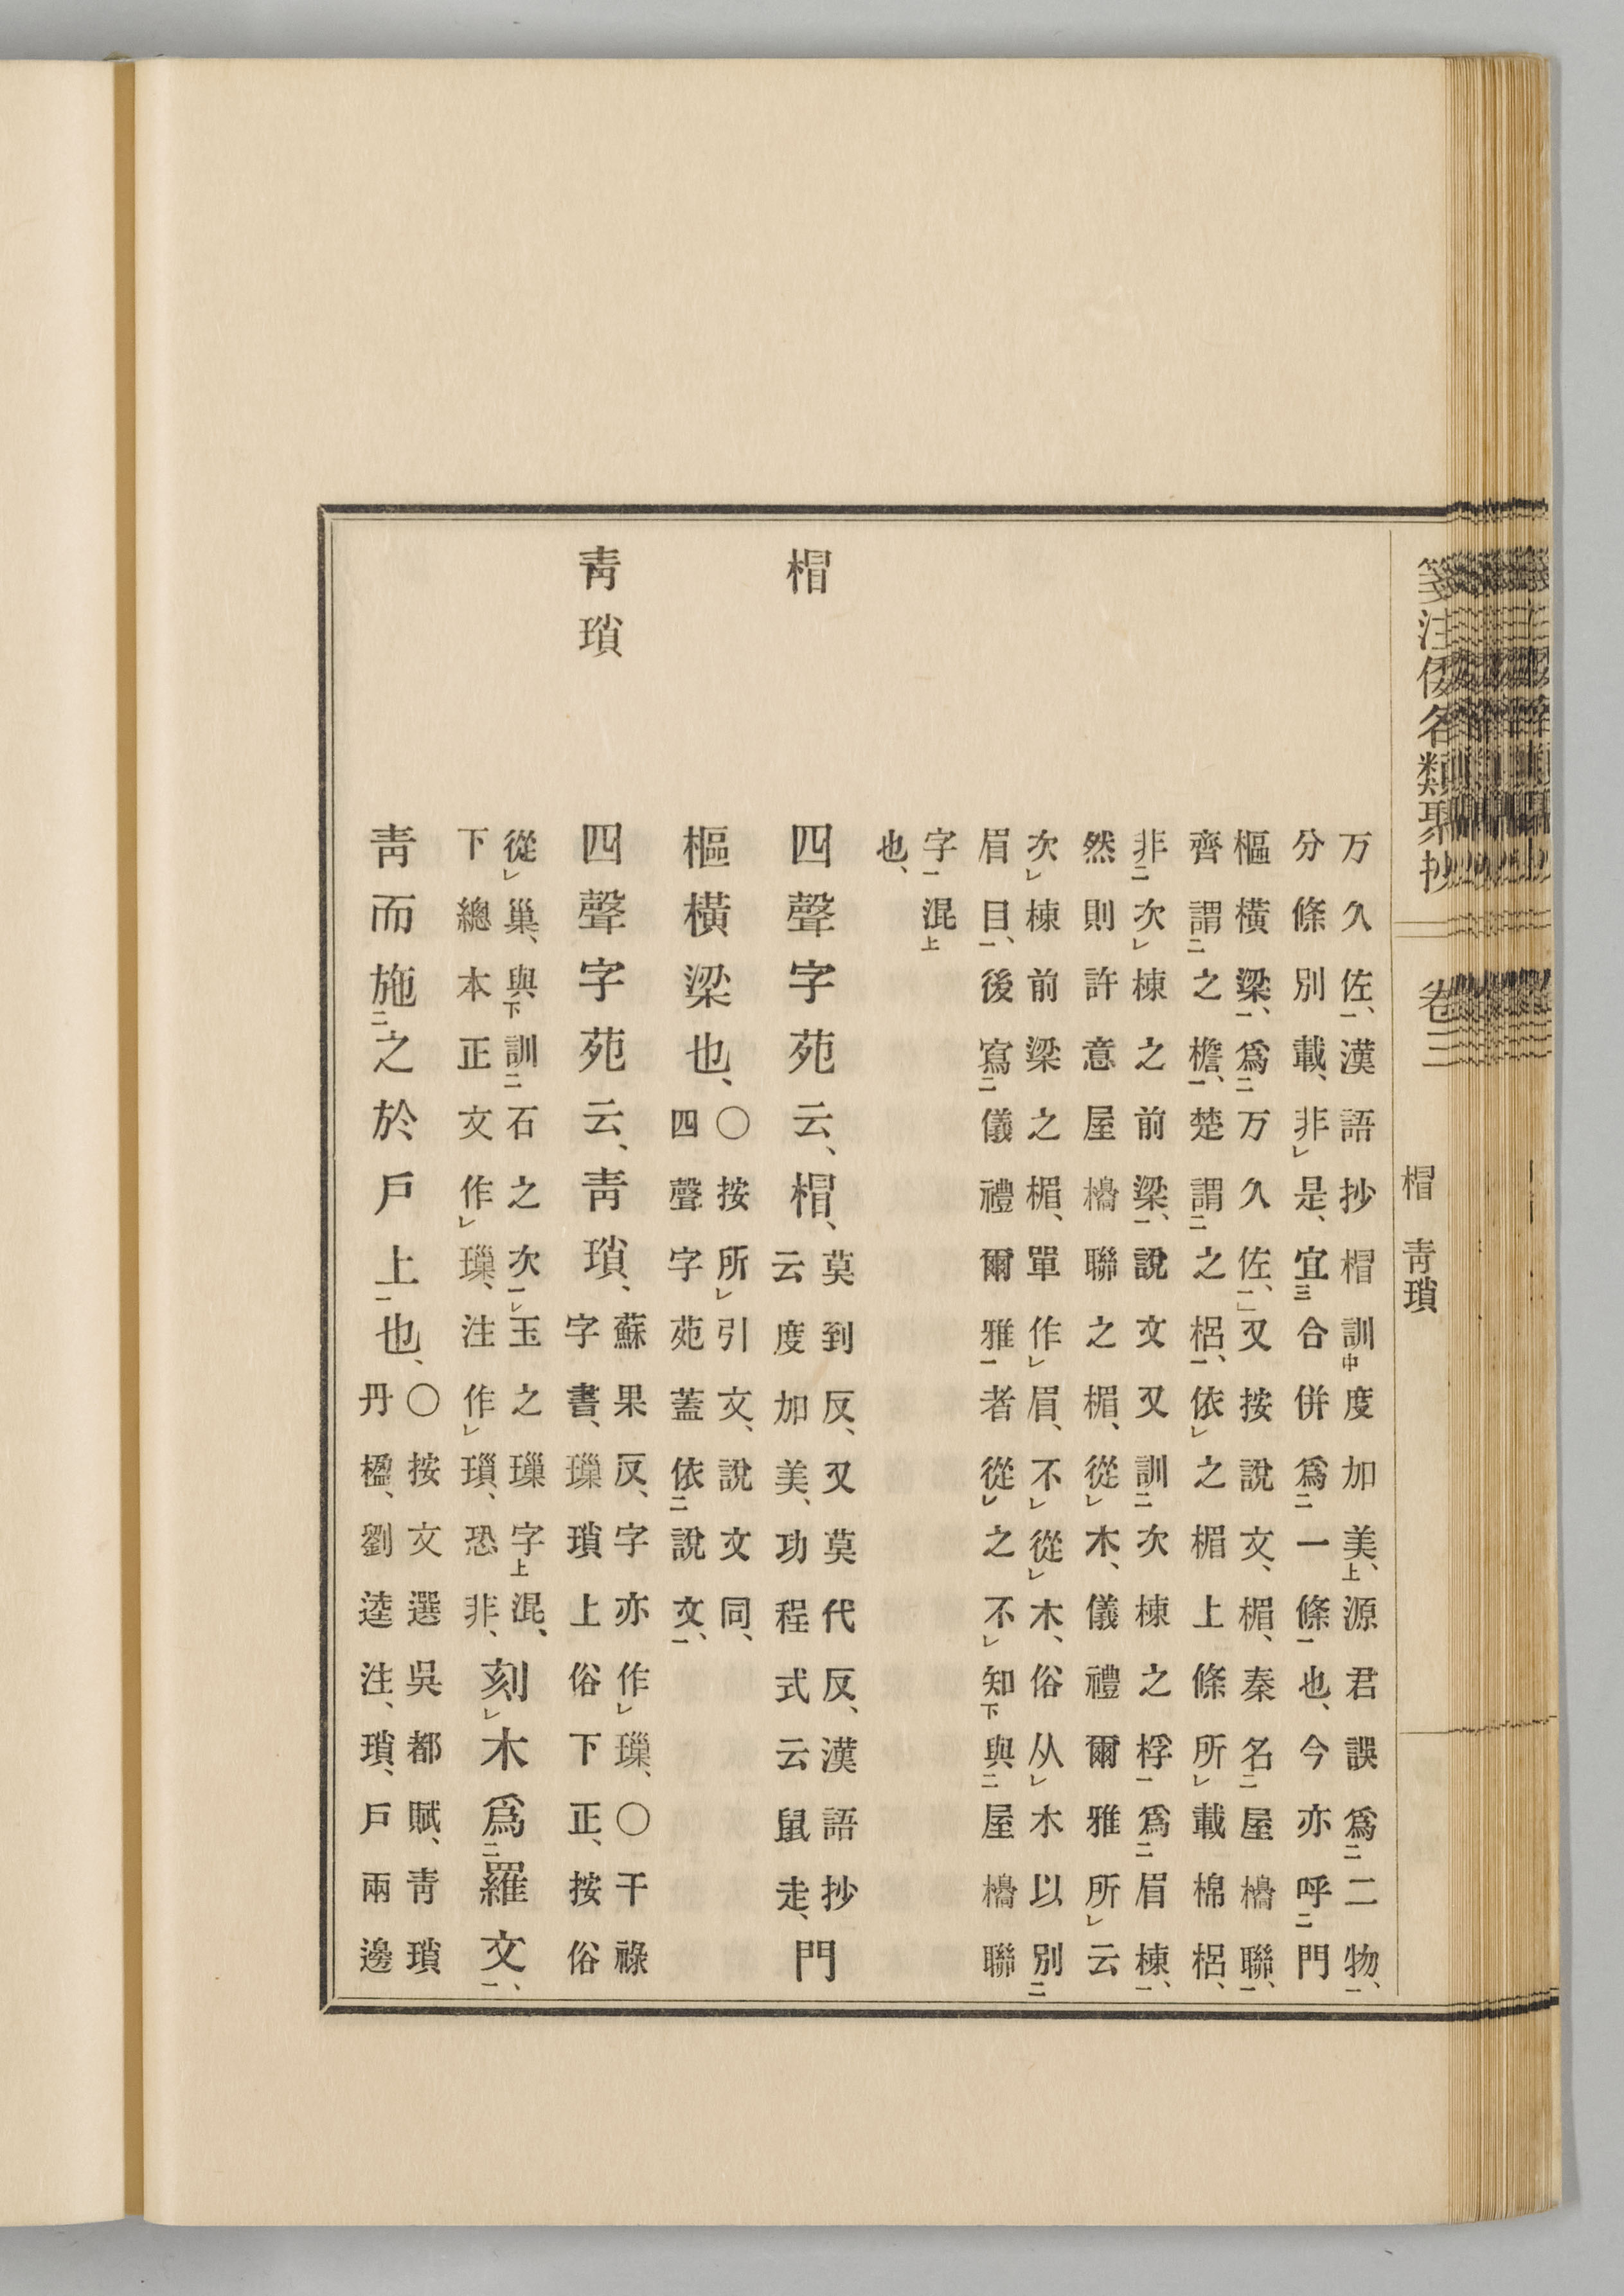 箋注倭名類聚抄 卷三 楣 靑瑣
万久佐、漢語抄楣訓度加美、源君誤爲二物、
分條別載、非是、宜合併爲一條也、今亦呼門
樞橫梁、爲万久佐、又按說文、楣、秦名屋櫋聯、
齊謂之檐、楚謂之梠、依之楣上條所載棉梠、
非次棟之前梁、說文又訓次棟之桴爲眉棟、
然則許意屋櫋聯之楣、從木、儀禮爾雅所云
次棟前梁之楣、單作眉、不從木、俗从木以別
眉目、後寫儀禮爾雅者從之不知與屋櫋聯
字混
也、
楣 四聲字苑云、楣、莫到反、又莫代反、漢語抄
云度加美、功程式云鼠走、門
樞橫梁也、〇按所引文、說文同、
四聲字苑蓋依說文、
靑瑣 四聲字苑云、靑瑣、蘇果反、字亦作璅、〇干祿
字書、璅瑣上俗下正、按俗
從巢、與訓石之次玉之璅字混、
下總本正文作璅、注作瑣、恐非、刻木爲羅文、
靑而施之於戶上也、〇按文選吳都賦、靑瑣
丹楹、劉逵注、瑣、戶兩邊